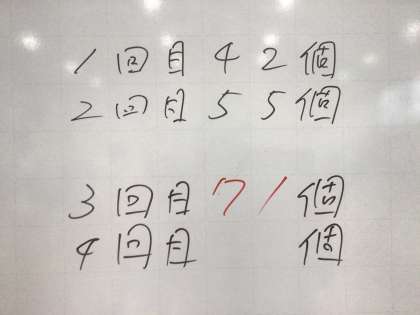 1回目42個
2回目55個
3回目71個
4回目 個